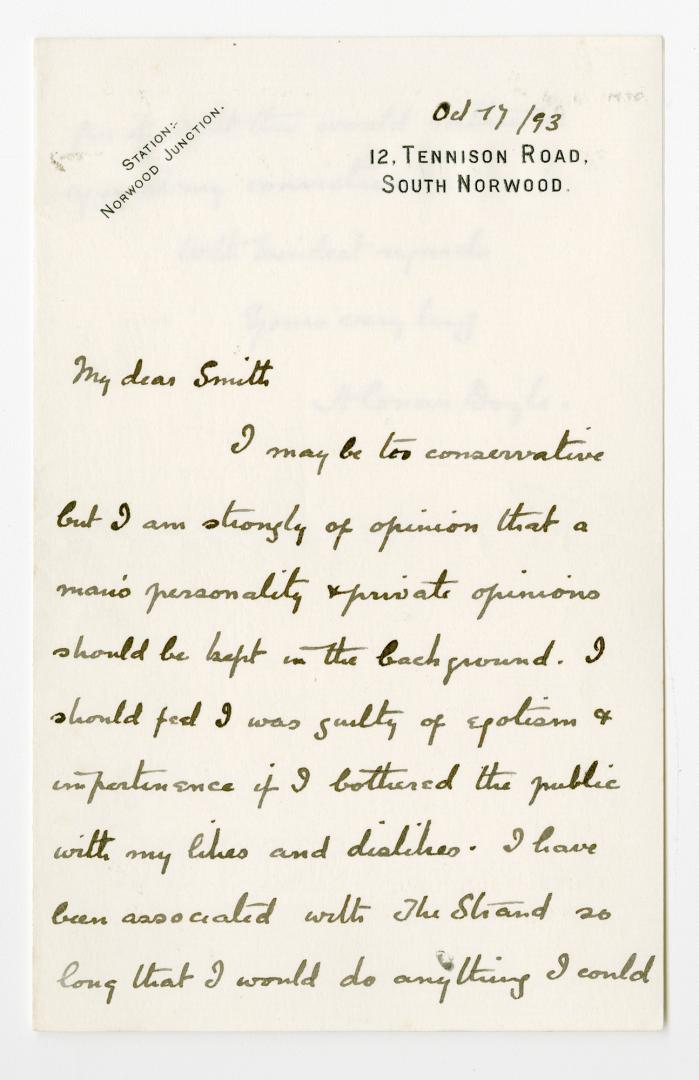 STATION:-
NORWOOD JUNCTION.
Oct 17/93
12, TENNISON ROAD,
SOUTH NORWOOD.
My dear Smith
I may be too conservative
but I am strongly of opinion that a
man's personality & private opinions
should be kept in the background. I
should feel I was guilty of egotism &
impertinence if I bothered the public
with my likes and dislikes. I have
been associated with The Strand so
long that I would do anything I could
With kindest regards
Yours very truly
A Conan Doyle.